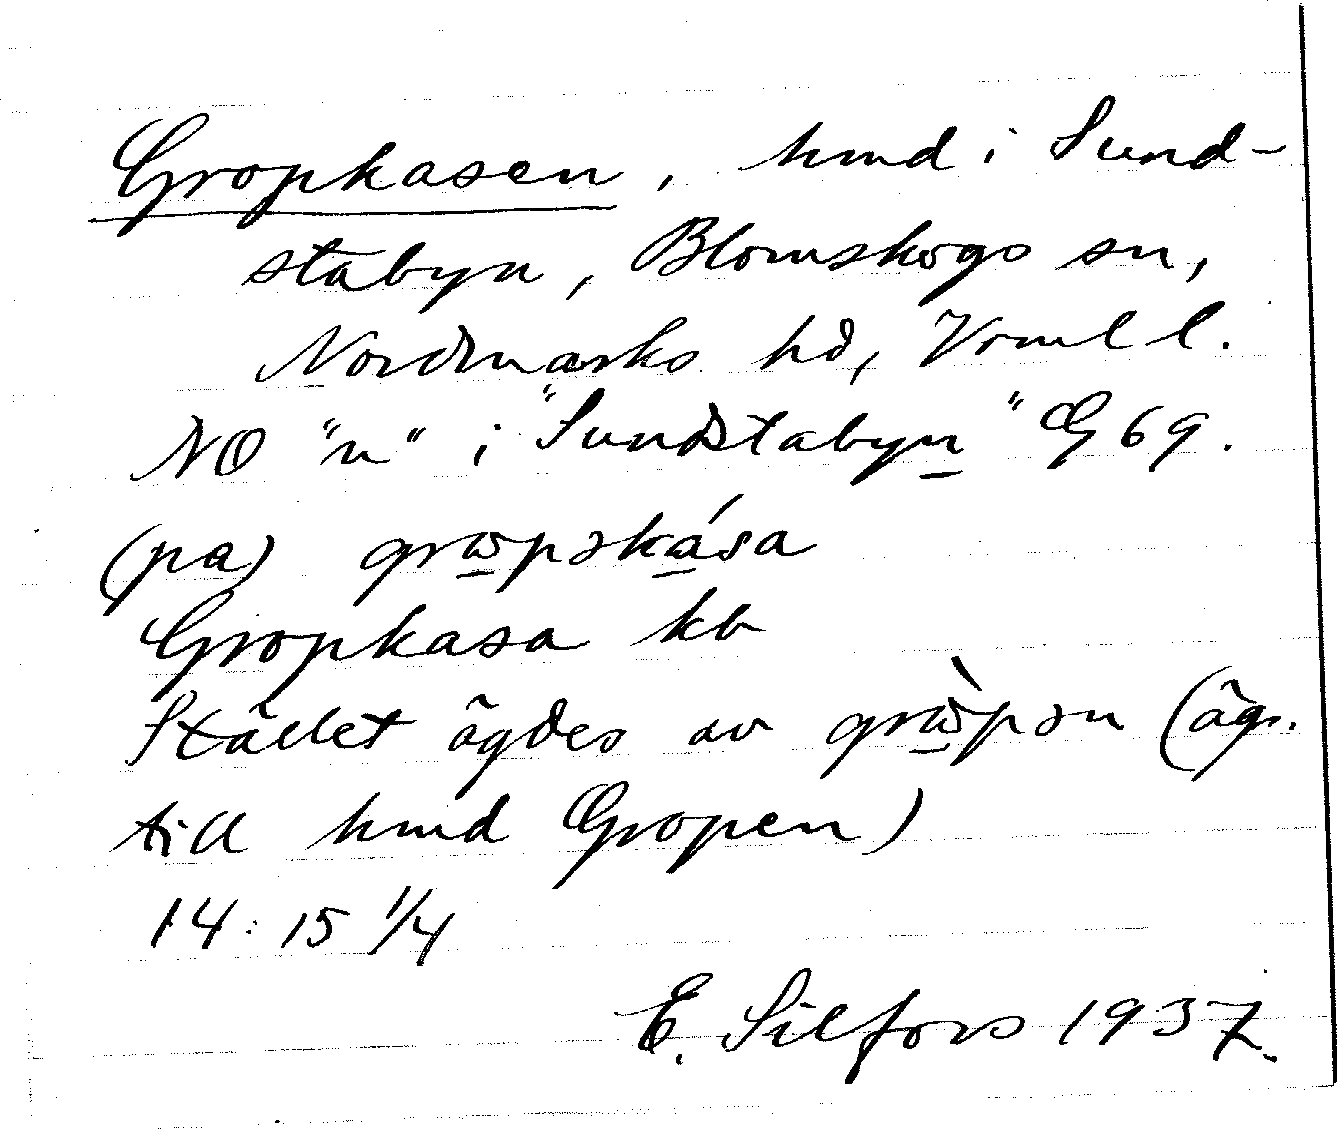 Gropkasen, hmd i Sund-
stabyn, Blomskogs sn,
Nordmarks hd, Vrml l.
NO "n" i "Sundstabyn" G 69.
(pa) grωpskása
Gropkasa kb
Stället ägdes av grὼpən (äg.
till hmd Gropen)
14:15 1/4
E. Silfors 1937.